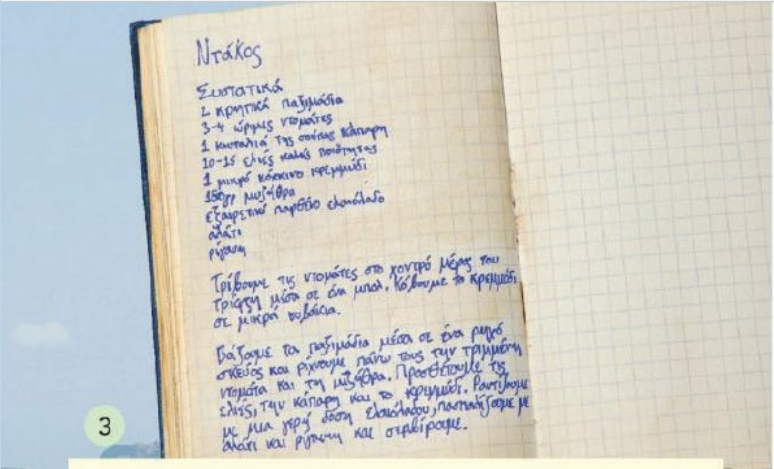 Ντάκος
Συστατικά
2 κρητικά παξιμάδια
3-4 ώριμες ντομάτες
1 κουταλιά της σούπας κάπαρη
10-15 ελιές καλής ποιότητας
1 μικρό κόκκινο κρεμμύδι
150γρ μυζήθρα
εξαιρετικό παρθένο ελαιόλαδο
αλάτι
ρίγανη
Τρίβουμε τις ντομάτες στο χοντρό μέρος του
τρίφτη μέσα σε ένα μπολ. Κόβουμε το κρεμμύδι
σε μικρά κυβάκια.
Βάζουμε τα παξιμάδια μέσα σε ένα ρηχό
σκεύος και ρίχνουμε πάνω τους την τριμμένη
ντομάτα και τη μυζήθρα. Προσθέτουμε τις
ελιές, την κάπαρη και το κρεμμύδι. Ραντίζουμε
με μια γερή δόση ελαιόλαδου, πασπαλίζουμε με
αλάτι και ρίγανη και σερβίρουμε.
3